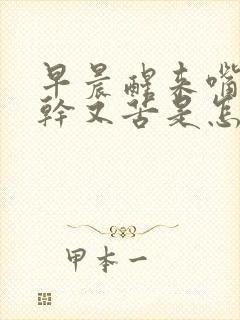 早晨醒来嘴
幹又苦是怎
甲本一